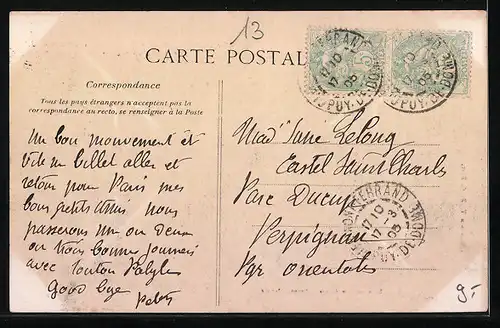 13
CARTE POSTALE
Correspondance
Tous les pays étrangers n'acceptent pas la
correspondance au recto, se renseigner à la Poste
Un bon mouvement et
vite un billet aller et
retour pour Paris mes
bons petits amis nous
passerons un ou deux
ou trois bonnes journées
avec tonton
Good bye
Mad Jane Lelong
Castel Saint Charles
Parc Ducup
Perpignan
Pyr orientales
PUY-DE-DOME
9.-